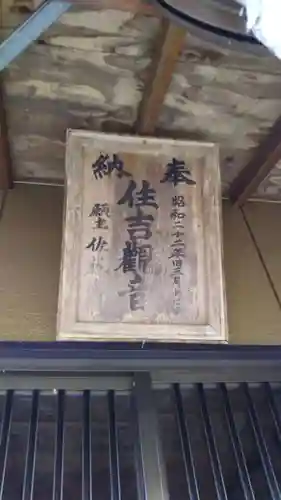 奉納
昭和二十二年旧三月十
住吉觀音
願主 佐